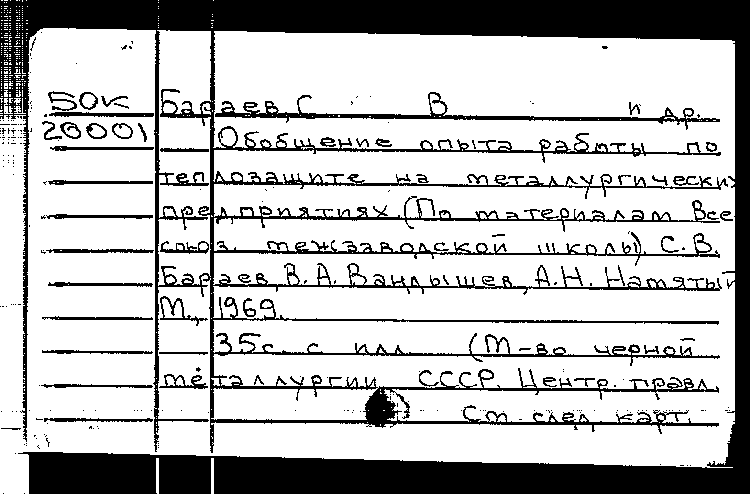 50к Бараев, С В и др.
20001 Обобщение опыта работы по
теплозащите на металлургических
предприятиях. (По материалам Все
союз. межзаводской школы). С.В.
Бараев, В.А. Вандышев, А.Н. Натятый
М., 1969.
35с. с илл. (М-во черной
металлургии СССР. Центр. правл.
См. след. карт.